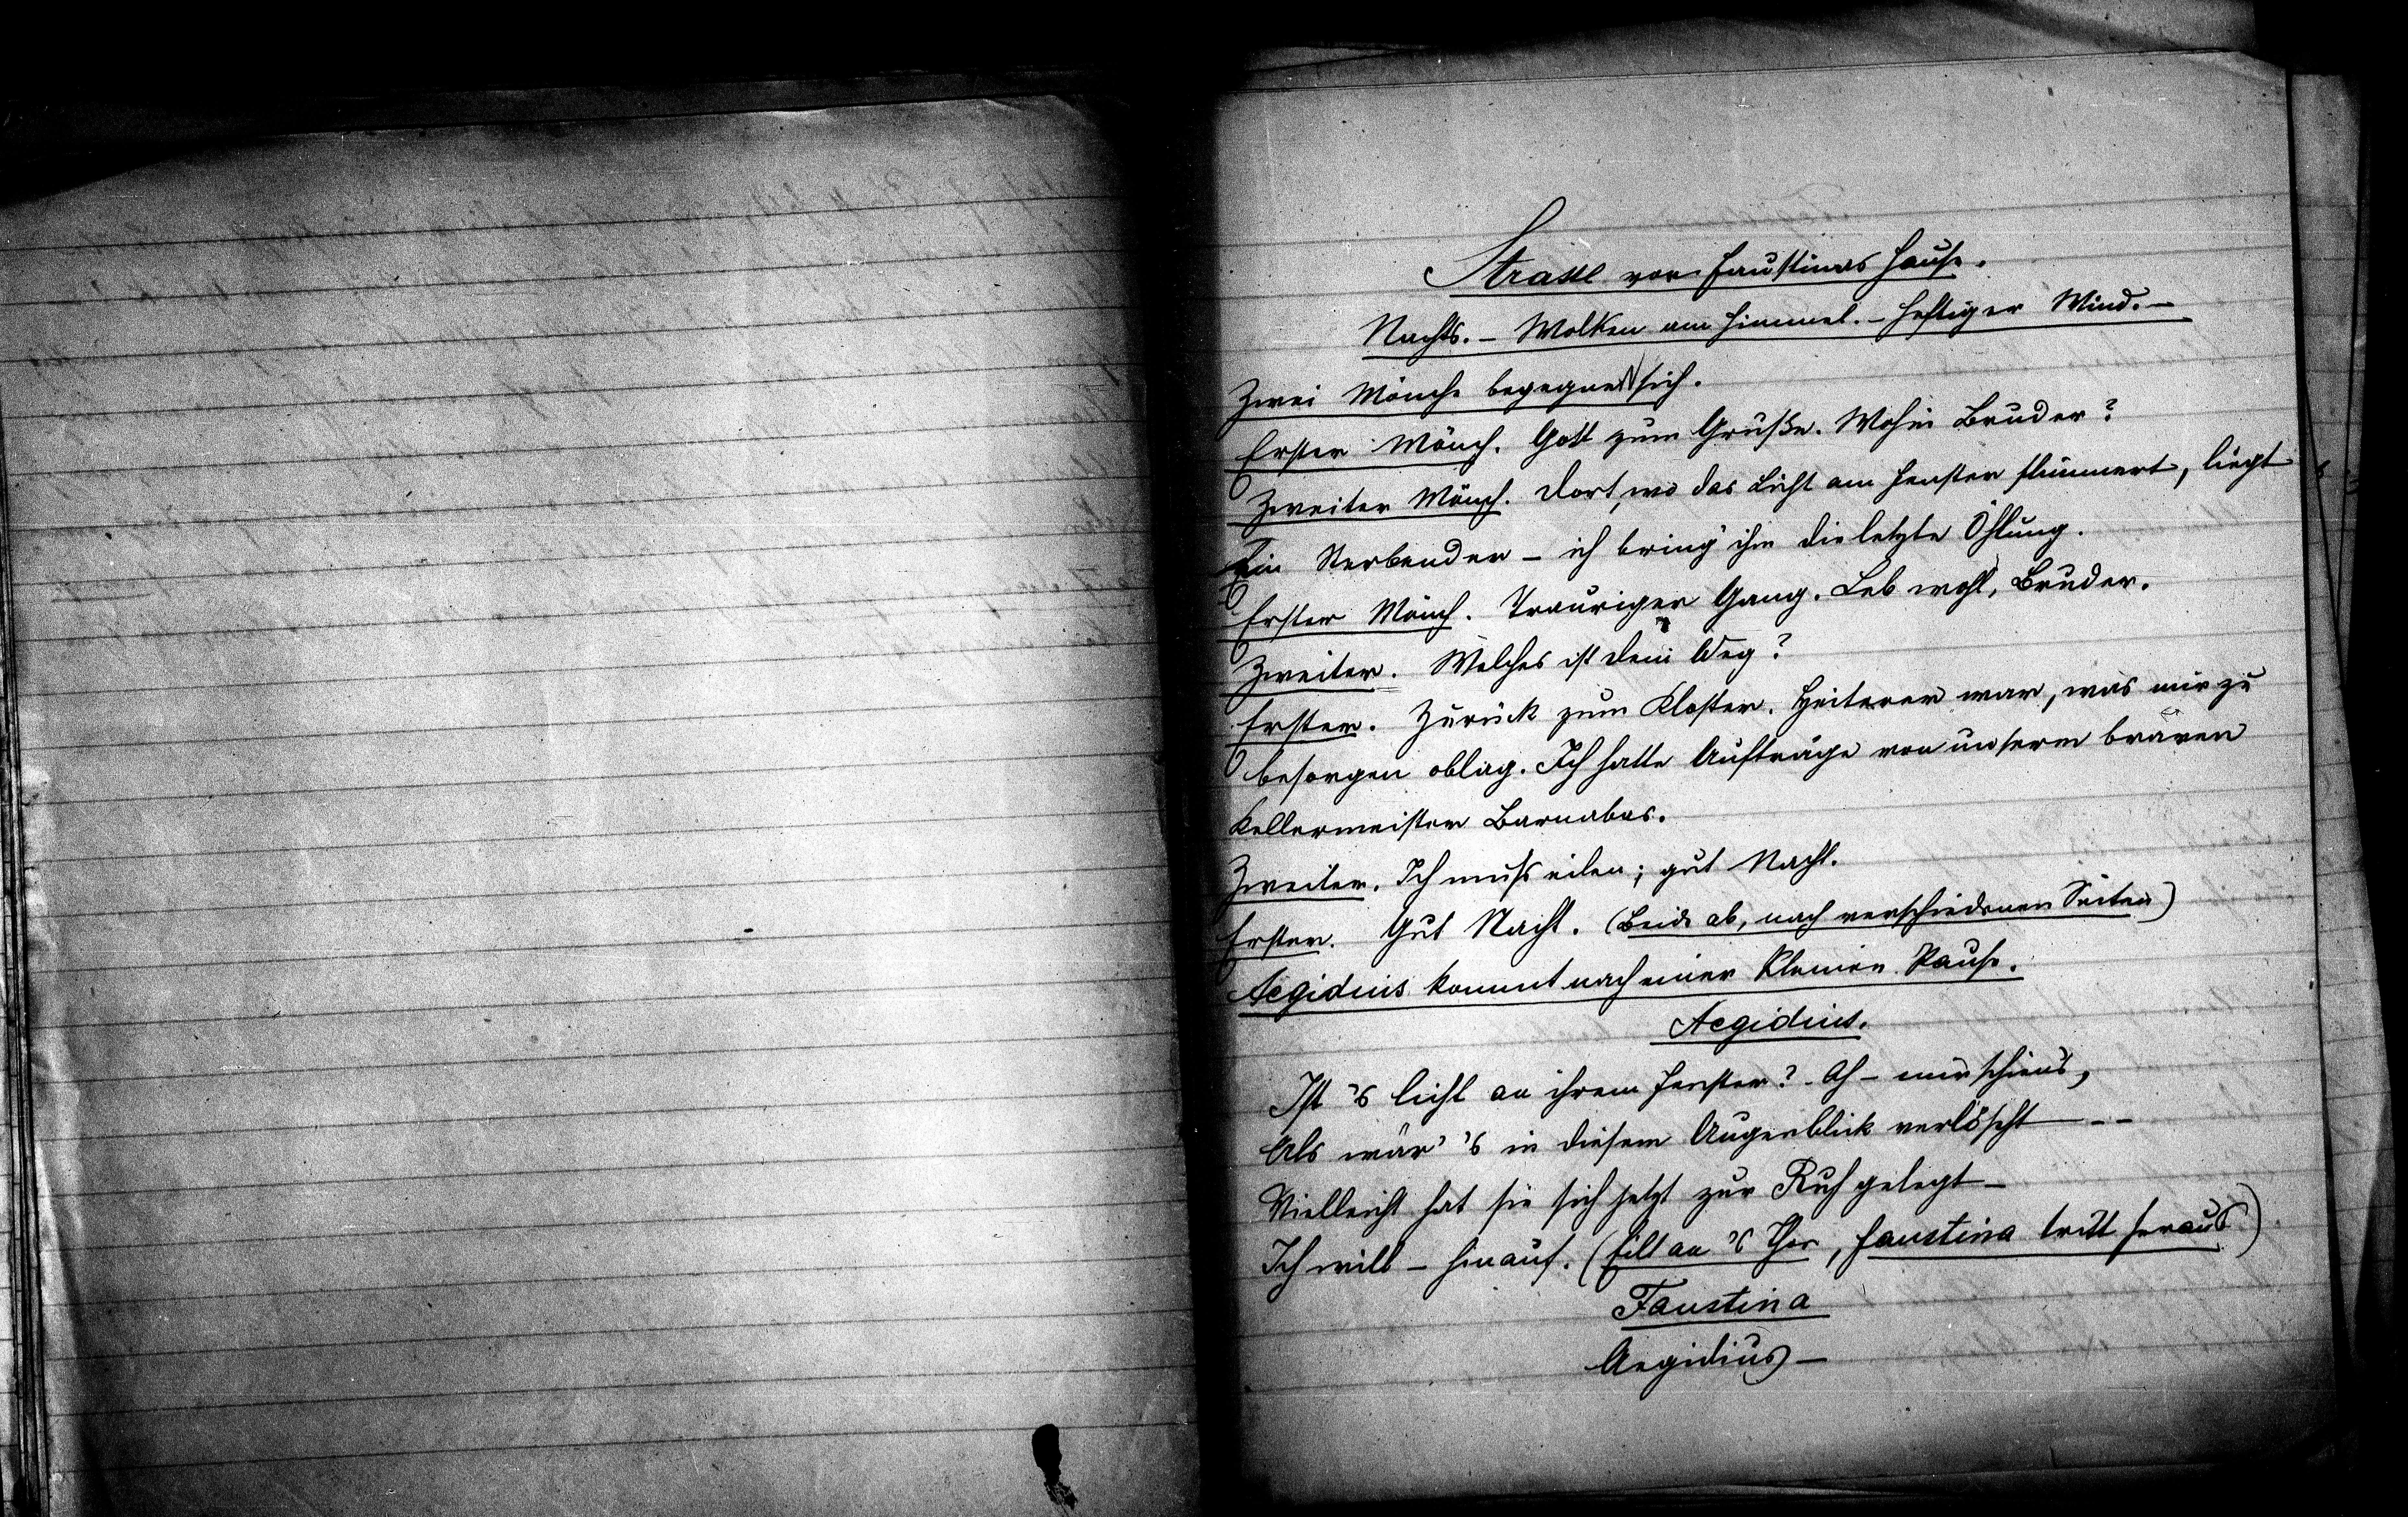 Strasse vor Faustinas Hause.
Nachts. – Wolken am Himmel. – Heftiger Wind. –
Zwei Mönche begegnen sich.
Erster Mönch. Gott zum Gruße. Wohin Bruder?
Zweiter Mönch. Dort, wo das Licht am Fenster flimmert, liegt
Ein Sterbender – ich bring' ihm die letzte Öhlung.
Erster Mönch. Trauriger Gang. Leb wohl, Bruder.
Zweiter. Welches ist dein Weg?
Erster. Zurück zum Kloster. Heiterer war, was mir zu
besorgen oblag. Ich hatte Aufträge von unserm braven
Kellermeister Barnabas.
Zweiter. Ich muß eilen; gut Nacht.
Erster. Gut Nacht. (Beide ab, nach verschiedenen Seiten)
Aegidius kommt nach einer kleinen Pause.
Aegidius.
Ist 's licht an ihrem Fenster? – Ah – mir schien's,
Als wär' 's in diesem Augenblick verlöscht – –
Vielleicht hat sie sich jetzt zur Ruh gelegt –
Ich will – hinauf. (Eilt an 's Thor, Faustina tritt heraus)
Faustina
Aegidius –